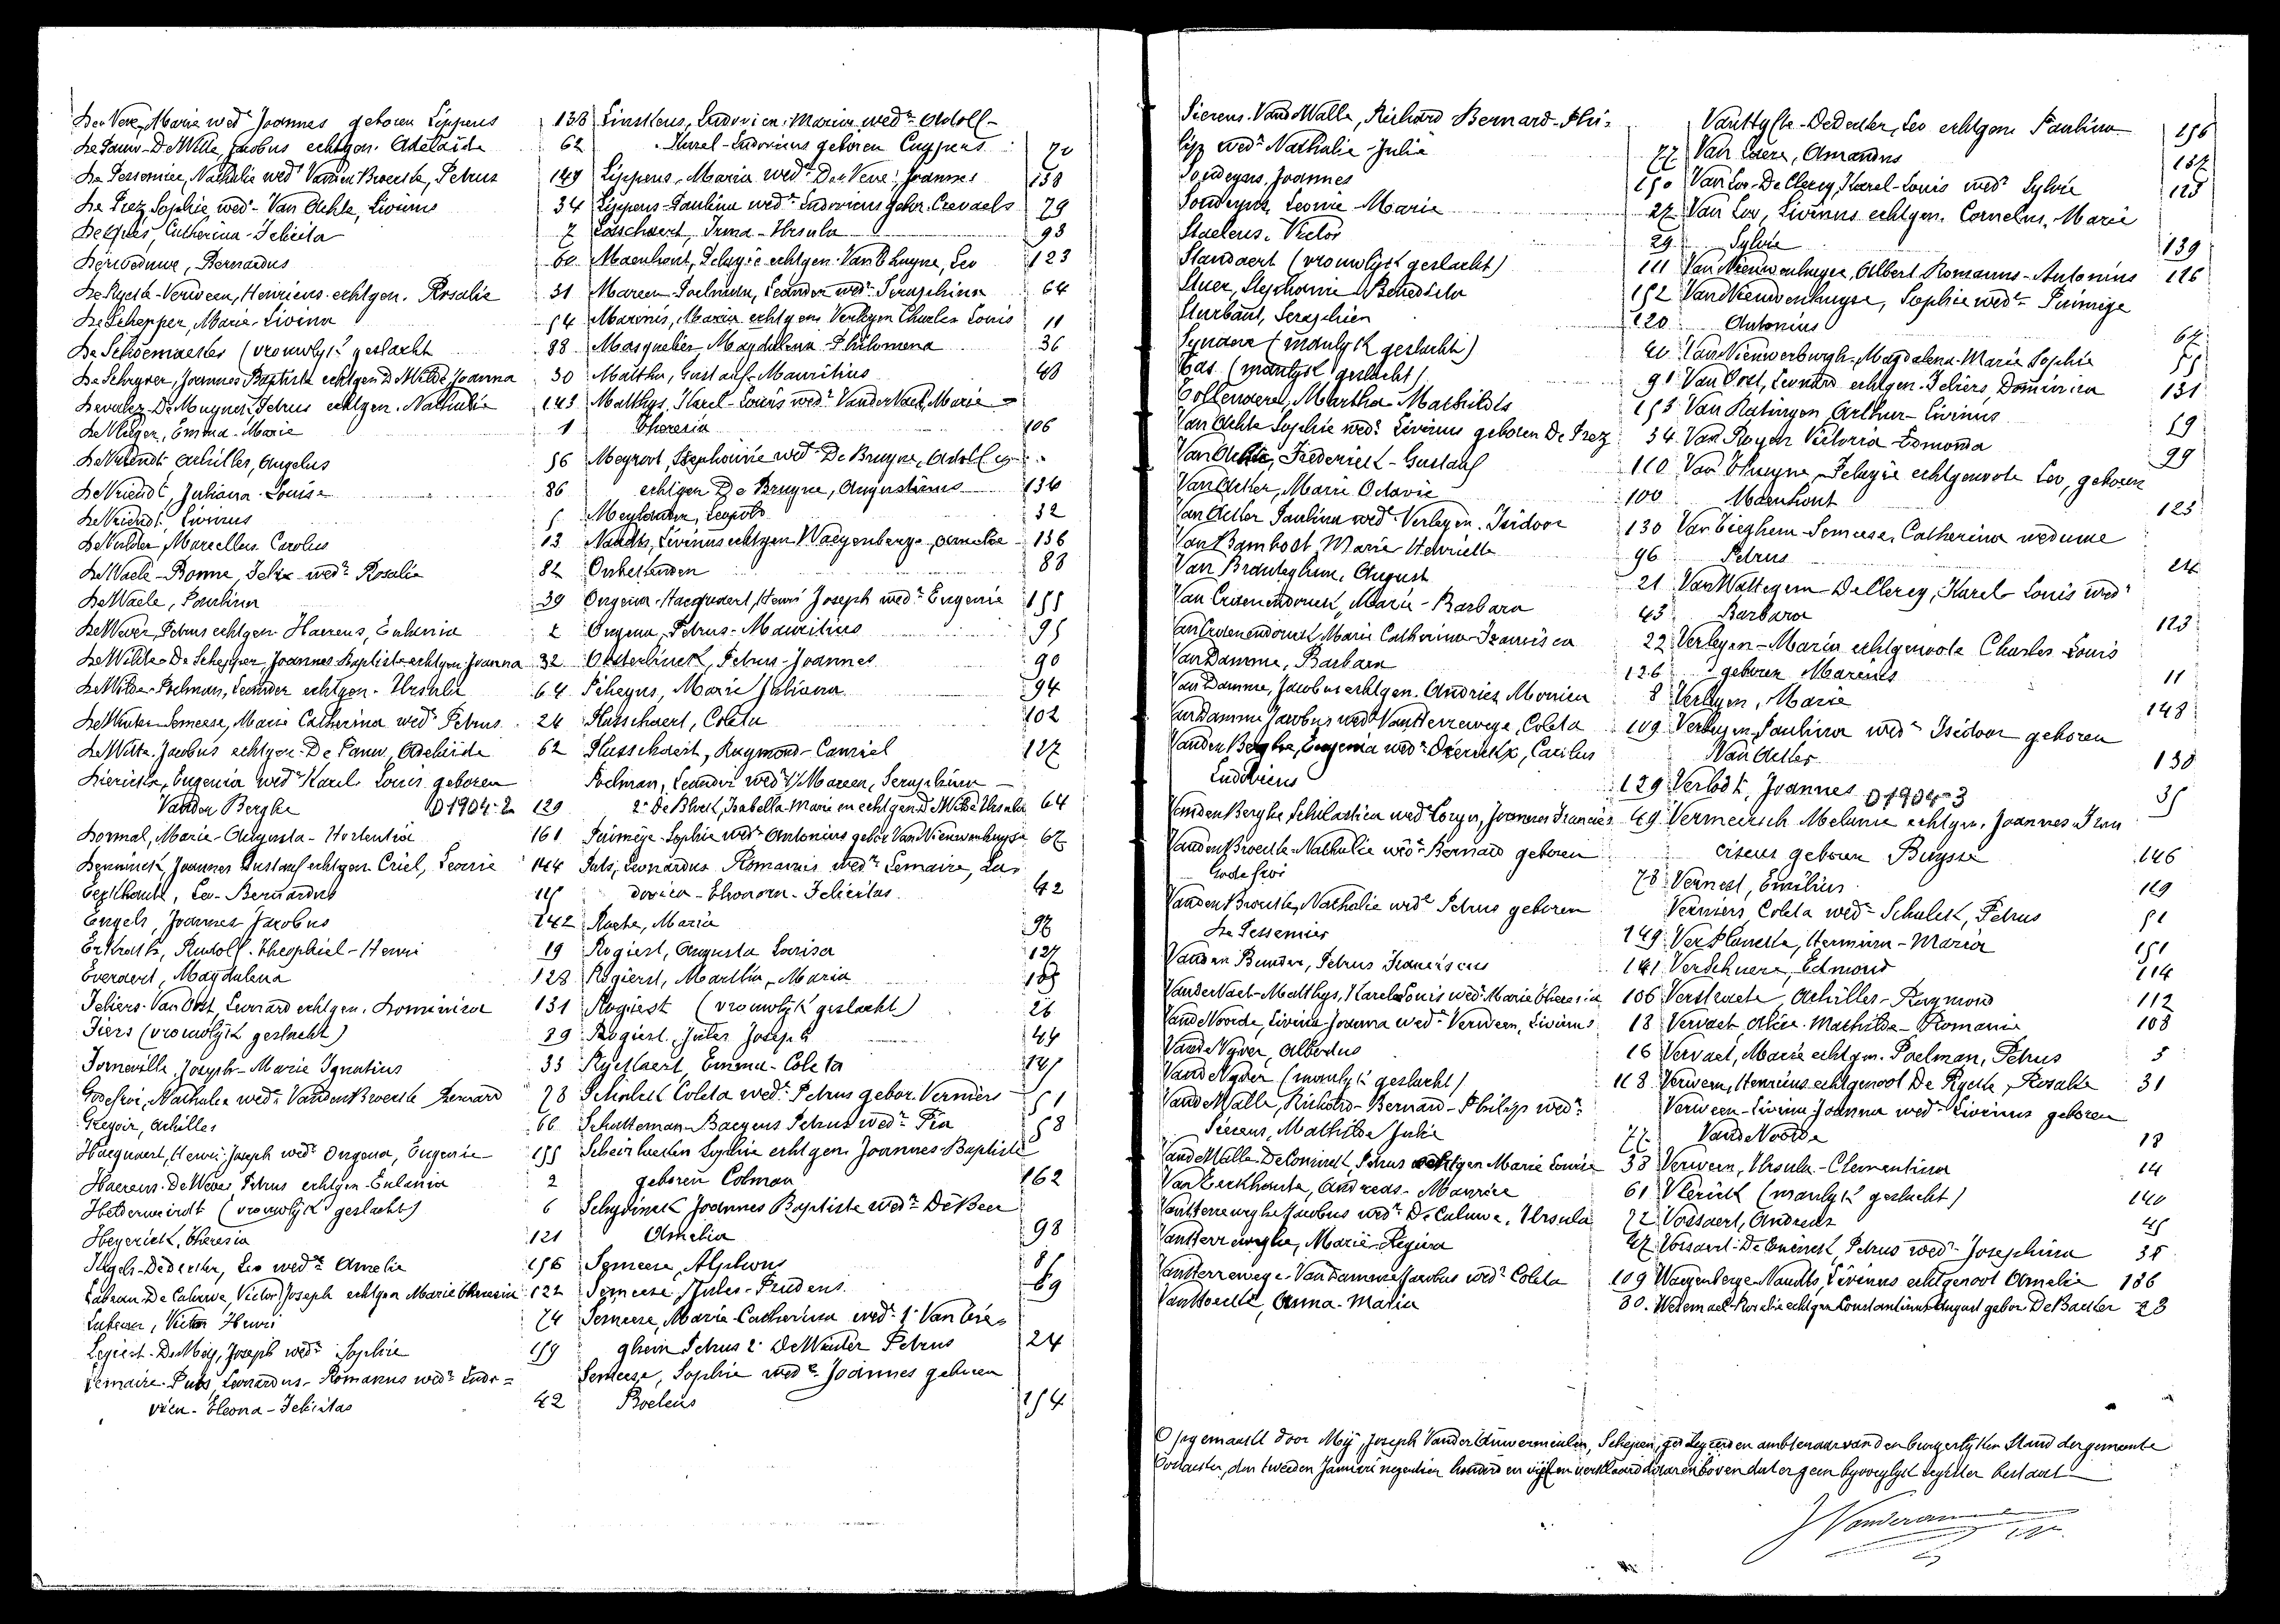 De Vene, Marie wedᵉ Joannes geboren Lippens 138
De Pauw-De Witte, Jacobus echtgen. Adelaïde 62
De Pessemier, Nathalie wedᵉ Vanden Broecke, Petrus 149
De Prez, Sophie, wedᵉ Van Achte, Livinus 34
Catherina-Felicita 7
Bernardus 60
De Rycke-Verween, Henricus echtgen. Rosalie 31
De Schepper, Marie-Livina 54
De Schoemaeker (vrouwlijk geslacht 88
De Schryver, Joannes Baptiste echtgen De Wilde Joanna 30
De Muynck Petrus echtgen. Nathalie 143
De Vlieger, Emma-Marie 1
De Vriendt Achilles, Angelus 56
De Vriendt, Juliana-Louise 86
De Vriendt, Livinus 5
De Vulder Marcellus Carolus 13
De Waele-Bonne, Felix wedʳ Rosalie 82
De Waele, Paulina 39
De Wever, Petrus echtgen Haerens, Eulania 2
De Wilde-De Schepper Joannes-Baptiste echtgen Joanna 32
De Wilde-Poelman, Leander echtgen. Ursula 64
De Winter-Semeese, Marie Catherina wedᵉ Petrus 24
De Witte, Jacobus echtgen-De Pauw, Adelaïde 62
Dierickx, Eugenia wedᵉ Karel Louis geboren
Vanden Berghe D 1904-2 129
Dormal, Marie-Augusta-Hortentia 161
Joannes Gustaaf echtgen Criel, Leonie 144
Leo-Bernardus 115
Engels, Joannes-Jacobus 142
Rudolf-Theophiel-Henri 19
Everaert, Magdalena 128
Feliers-Van Oost, Leonard echtgen. Dominica 131
Fiers (vrouwlijk geslacht) 89
Forneville, Joseph-Marie Ignatius 33
Godefroi, Nathalie wedᵉ Vanden Broecke Bernard 78
Gregoir, Achilles 66
Hacquaert, Henri-Joseph wedʳ Ongena, Eugenie 155
Haerens-De Wever Petrus echtgen-Eulania 2
(vrouwlijk geslacht) 6
Heyerick, Theresia 121
Dedecker, Leo wedʳ Amelie 156
De Caluwe, Victor Joseph echtgen Marie Theresia 122
Victor Henri 74
De Mey, Joseph wedʳ Sophie 159
Lemaire-Puts, Leonardus-Romanus wedʳ Ludo=
vica-Eleona-Felicitas 42
Ludovica-Maria wedᵉ Adolf-
Karel-Ludovicus geboren Cuypens 70
Lippens, Maria wedᵉ De Vene, Joannes 138
Lippens-Paulina wedᵉ Ludovicus gebor. Crevaels 79
Irma-Ursula 93
Maenhout, Pelagie echtgen. Van Thuyne, Leo 123
Mareen-Poelman, Leander wedʳ Seraphina 64
Marenis, Maria echtgen Verleyen Charles Louis 11
Masquelier Magdalena-Philomena 36
Matthe, Gustaaf-Mauritius 48
Matthys, Karel-Louis wedʳ Vander Vaet, Marie-
Theresia 106
Meyvart, Stephanie wedᵉ De Bruyne, Adolf en
echtgen De Bruyne, Augustinus 134
Leopold 32
Naudts, Livinus echtgen Waeyenberge, Amelie 136
Onbekenden 83
Ongena-Hacquaert, Henri Joseph wedʳ Eugenie 155
Ongena, Petrus-Mauritius 95
Oosterlinck, Petrus-Joannes 90
Marie Juliana 94
Plasschaert, Coleta 102
Plasschaert, Raymond-Camiel 127
Poelman, Leander wedʳ 1/ Mareen, Seraphina
2ᵉ De Block, Isabella-Marie en echtgen De Wilde Ursula 64
Sophie wedᵉ Antonius gebor Van Nieuwenhuyse 67
Puts, Leonardus Romanus wedʳ Lemaire, Lu=
dovica-Eleonora-Felicitas 42
Maria 96
Rogiest, Augusta Louisa 127
Rogierst, Martha-Maria 105
Rogiest (vrouwlijk geslacht) 26
Rogiest, Jules Joseph 44
Ryckaert, Emma-Coleta 145
Schelck Coleta wedᵉ Petrus gebor. Verniers 51
Schatteman-Baeyens Petrus wedʳ Pia 58
Sophie echtgen Joannes-Baptiste
geboren Colman 162
Schydinck Joannes Baptiste wedʳ De Beer
Amelia 98
Semeese, Alphons 85
Semeese, Jules-Prudens 69
Semeese, Marie-Catherina wedᵉ 1ᵉ Van Tie=
ghem Petrus 2ᵉ De Winter Petrus 24
Semeese, Sophie wedᵉ Joannes geboren
Boelens 154
Sierens-Vande Walle, Richard Bernard-Phi=
lip wedʳ Nathalie-Julie 77
Joannes 150
Leonie-Marie 27
Staelens, Victor 29
Standaert (vrouwlijk geslacht) 111
Stuer, Stephanie Benedicta 152
Sturbaut, Seraphien 120
Synaeve (manlijk geslacht) 20
Tas (manlijk geslacht) 91
Tollenaere, Martha Mathildis 153
Van Achte Sophie wedᵉ Livinus geboren De Prez 34
Frederick-Gustaaf 110
Van Acker, Marie Octavie 100
Van Acker Paulina wedᵉ Verleyen. Isidoor 130
Marie Henriette 96
Van Branteghem, August 21
Marie-Barbara 43
Marie Catherina-Francisca 22
Van Damme, Barbara 126
Van Damme, Jacobus echtgen. Andries Monica 8
Van Damme Jacobus wedʳ Van Herrewege, Coleta 109
Vanden Berghe, Eugenia wedᵉ Dierickx, Carolus
Ludovicus 129
Vanden Berghe Scholastica wedᵉ Joannes Francies 49
Vanden Broecke-Nathalie wedᵉ Bernard geboren
Godefroi 78
Vanden Broecke, Nathalie wedᵉ Petrus geboren
De Pessemier 149
Petrus Franciscus 141
Vander Vaet-Matthys, Karel Louis wedʳ Marie Theresia 106
Vande Voorde, Livina-Joanna wedᵉ Verween, Livinus 18
Vande Vyver, Albertus 16
Vande Vyver (manlijk geslacht) 118
Vande Walle, Richard-Bernard-Philip wedʳ
Sierens, Mathilde Julie 77
Vande Walle-De Coninck, Petrus echtgen Marie Louise 38
Van Eeckhoute, Andreas-Maurice 61
Van Herreweghe Jacobus wedʳ De Caluwe, Ursula 72
Van Herreweghe, Marie-Regina 47
Van Herrewege-Van Damme Jacobus wedʳ Coleta 109
Anna-Maria 80
Van Hyfte-Dedecker, Leo echtgen Paulina 156
Van Laere, Amandus 137
Van Loo-De Clercq, Karel-Louis wedʳ Sylvie 125
Van Loo, Livinus echtgen. Cornelus, Marie
Sylvie 139
Van Nieuwenhuyse, Albert Romanus-Antonius 116
Van Nieuwenhuyse, Sophie wedᵉ
Antonius 67
Van Nieuwerburgh, Magdalena-Marie Sophie 55
Van Oost, Leonard echtgen. Feliers, Dominica 131
Van Ratingen Arthur-Livinus 59
Van Royen Victoria Edmonda 99
Van Thuyne, Pelagie echtgenoote Leo, geboren
Maenhout 123
Van Tieghem-Semeese, Catherina weduwe
Petrus 24
Van Wattegem-De Clercq, Karel-Louis wedʳ
Barbara 123
Verleyen-Maria echtgenoote Charles-Louis
geboren Marenis 11
Verleyen, Marie 148
Verleyen, Paulina wedᵉ Isidoor geboren
Van Acker 130
Verlodt, Joannes D 1904-3 35
Vermeersch Melanie echtgen. Joannes-Fran
ciscus geboren Buysse 146
Vernest, Emilius 119
Verniers Coleta wedᵉ Schelck, Petrus 51
Ver Plancke, Hermina-Maria 151
Verschuere, Edmond 114
Verstraete, Achilles-Raymond 112
Vervaet, Alice-Mathilde-Romanie 108
Vervaet, Marie echtgen. Poelman, Petrus 5
Verween, Henricus echtgenoot De Rycke, Rosalie 31
Verween-Livina Joanna wedᵉ Livinus geboren
Vande Voorde 18
Verween, Ursula-Clementina 14
Vlerick (manlijk geslacht) 140
Vossaert, Andreas 45
Vossaert-De Coninck, Petrus wedʳ Josephina 38
Waeyenberge-Naudts, Livinus echtgenoot Amelie 136
Rosalie echtgen Constantinus August gebor De Backer 23
Opgemaakt door Mij, Joseph Vander Schepen, gedelegeerden ambtenaar van den burgerlijken Stand der gemeente
den tweeden Januari negentien honderd en vijf en verklaard daarenboven dat er geen bijvoeglijk register bestaat